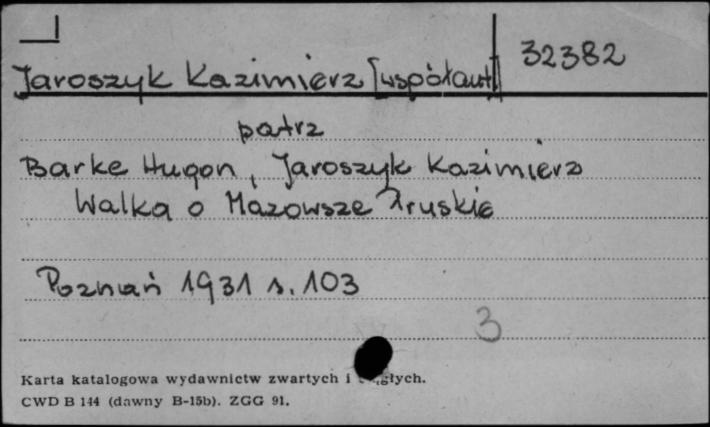 32382
Jaroszyk Kazimierz [współaut]
patrz
Barke Hugon, Jaroszyk Kazimierz
Walka o Mazowsze Pruskie
Poznań 1931 s. 103
3
Karta katalogowa wydawnictw zwartych i
CWD B 144 (dawny B-15b). ZGG 91.